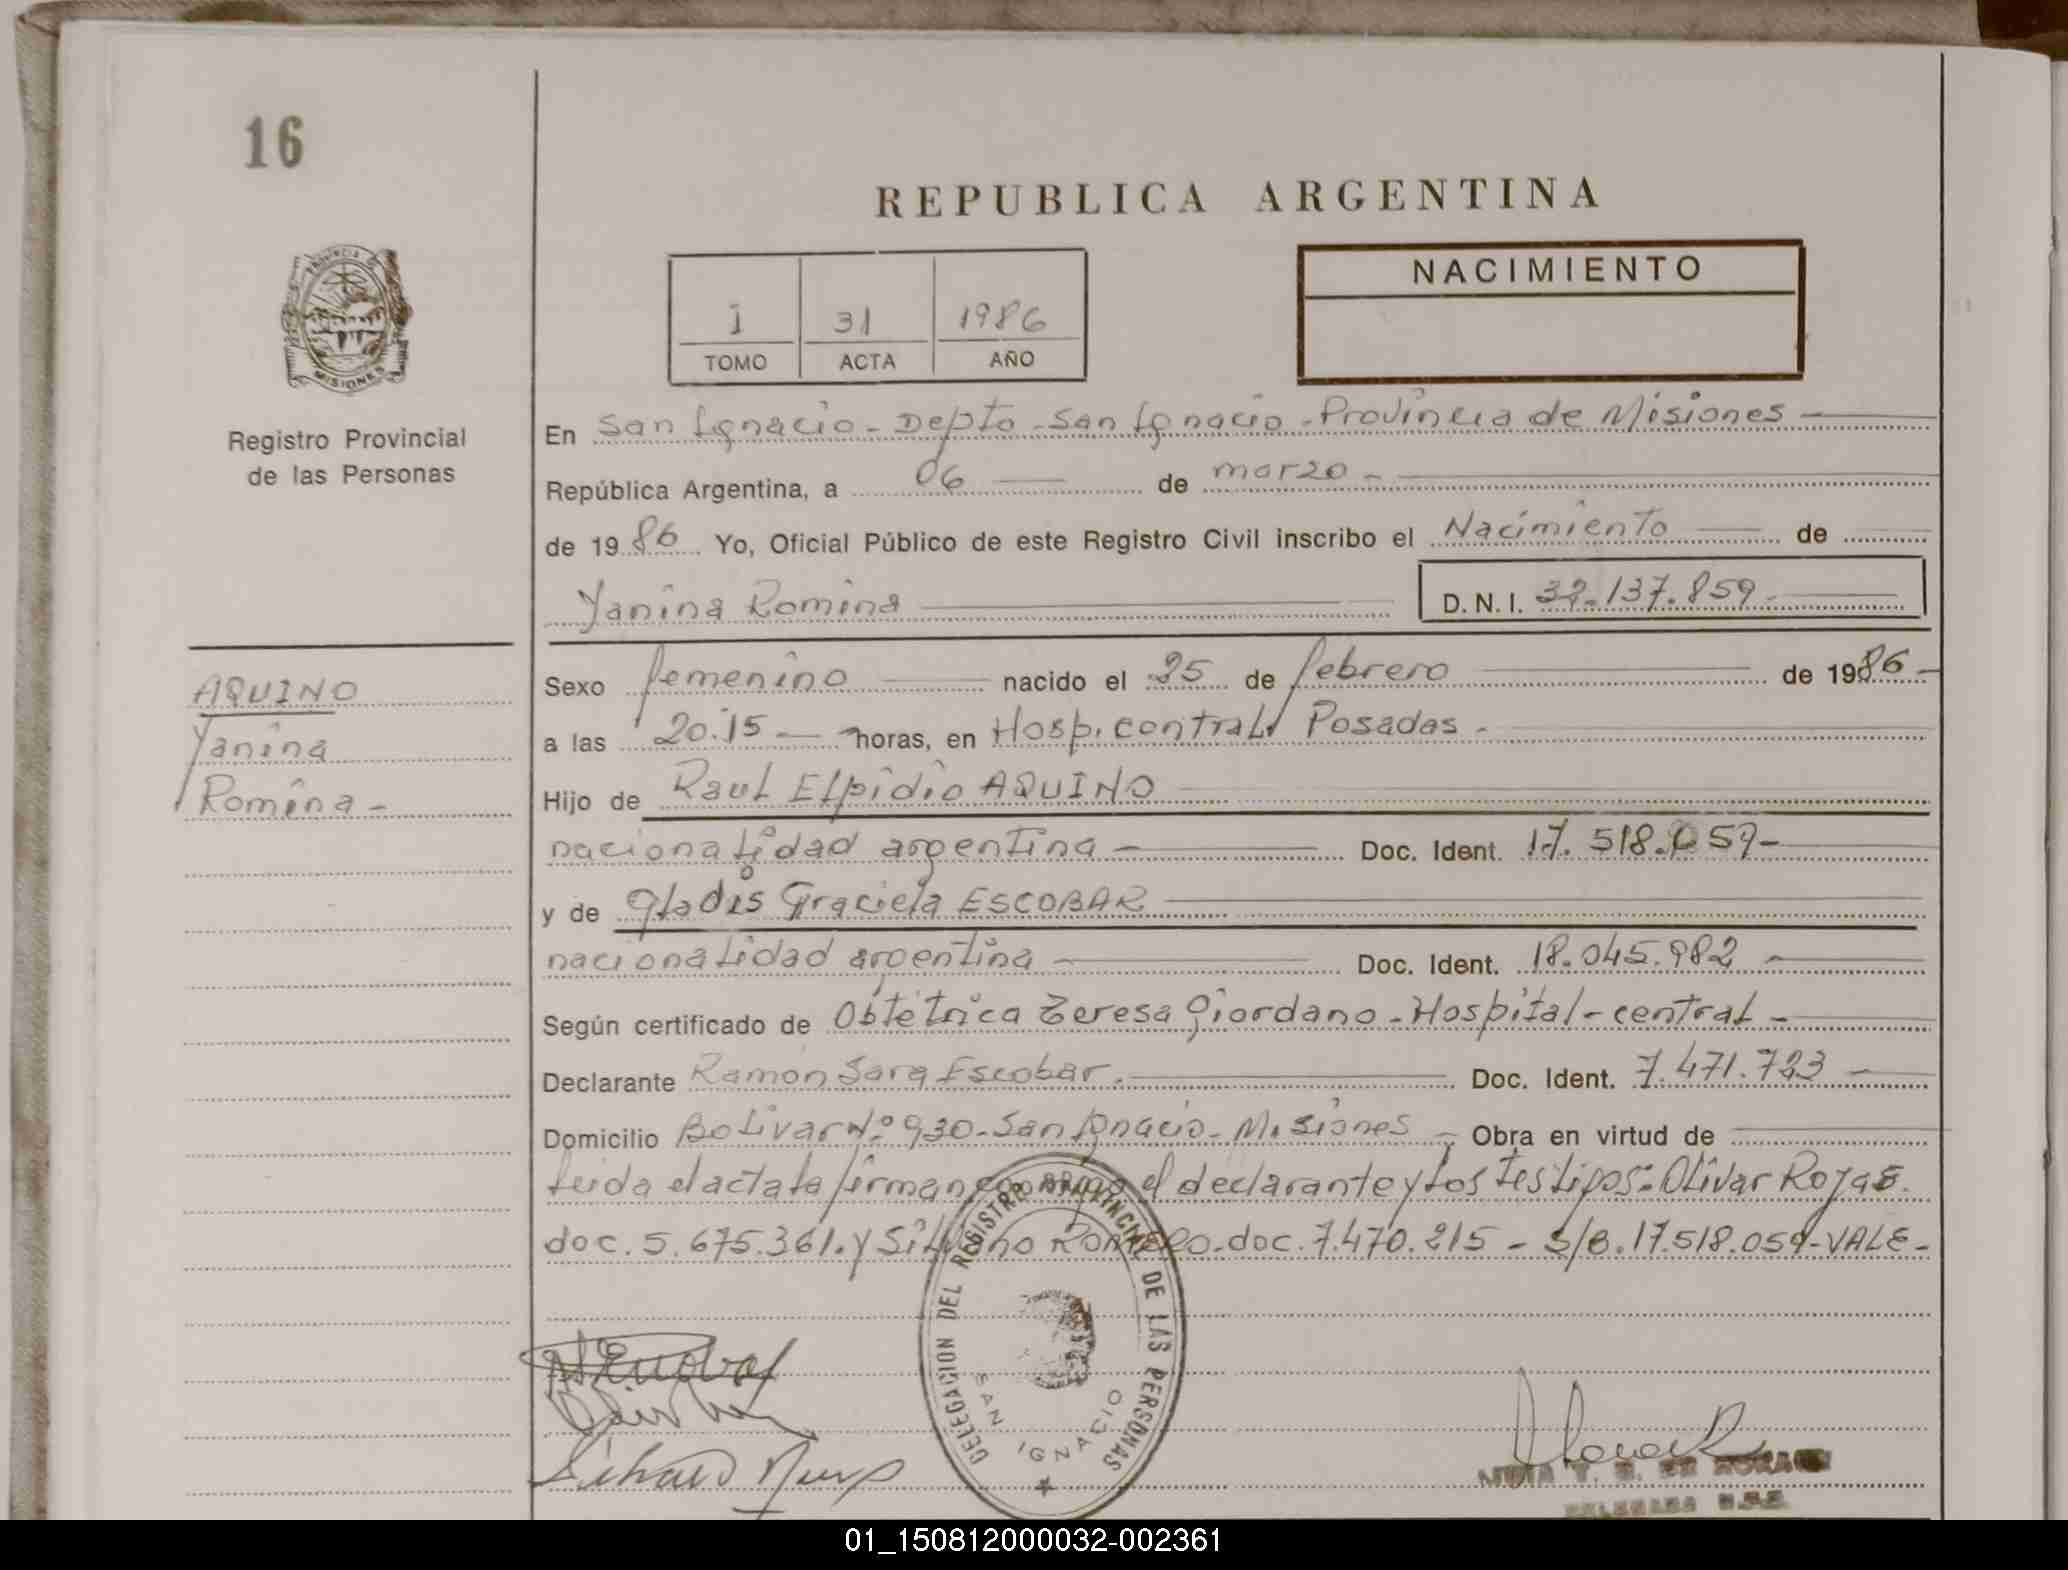 16
REPUBLICA ARGENTINA
PROVINCIA DE MISIONES
1 31 1986
TOMO ACTA AÑO
NACIMIENTO
Registro Provincial
de las Personas
En San Ignacio - Depto - San Ignacio - Provincia de Misiones
República Argentina, a 06 de marzo -
de 1986 Yo, Oficial Público de este Registro Civil inscribo el Nacimiento de
Yanina Romina D.N.I. 32.137.859 -
AQUINO
Yanina
Romina -
Sexo femenino nacido el 25 de febrero de 1986 -
a las 20.15 - horas, en Hosp. central Posadas -
Hijo de Raul Elpidio AQUINO
nacionalidad argentina - Doc. Ident. 17.518.059 -
y de Gladis Graciela ESCOBAR
nacionalidad argentina - Doc. Ident. 18.045.982 -
Según certificado de Obtétrica Teresa Giordano - Hospital - central -
Declarante Ramón Sara Escobar. Doc. Ident. 7.471.723 -
Domicilio Bolivar Nº 930 - San Ignacio - Misiones - Obra en virtud de
leida el acta la firman conmigo el declarante y los testigos: Olivar Rojas.
doc. 5.675.361. y Silvano Romero - doc. 7.470.215 - S/B. 17.518.059 - VALE -
DELEGACION DEL REGISTRO PROVINCIAL DE LAS PERSONAS
SAN IGNACIO
01_150812000032-002361